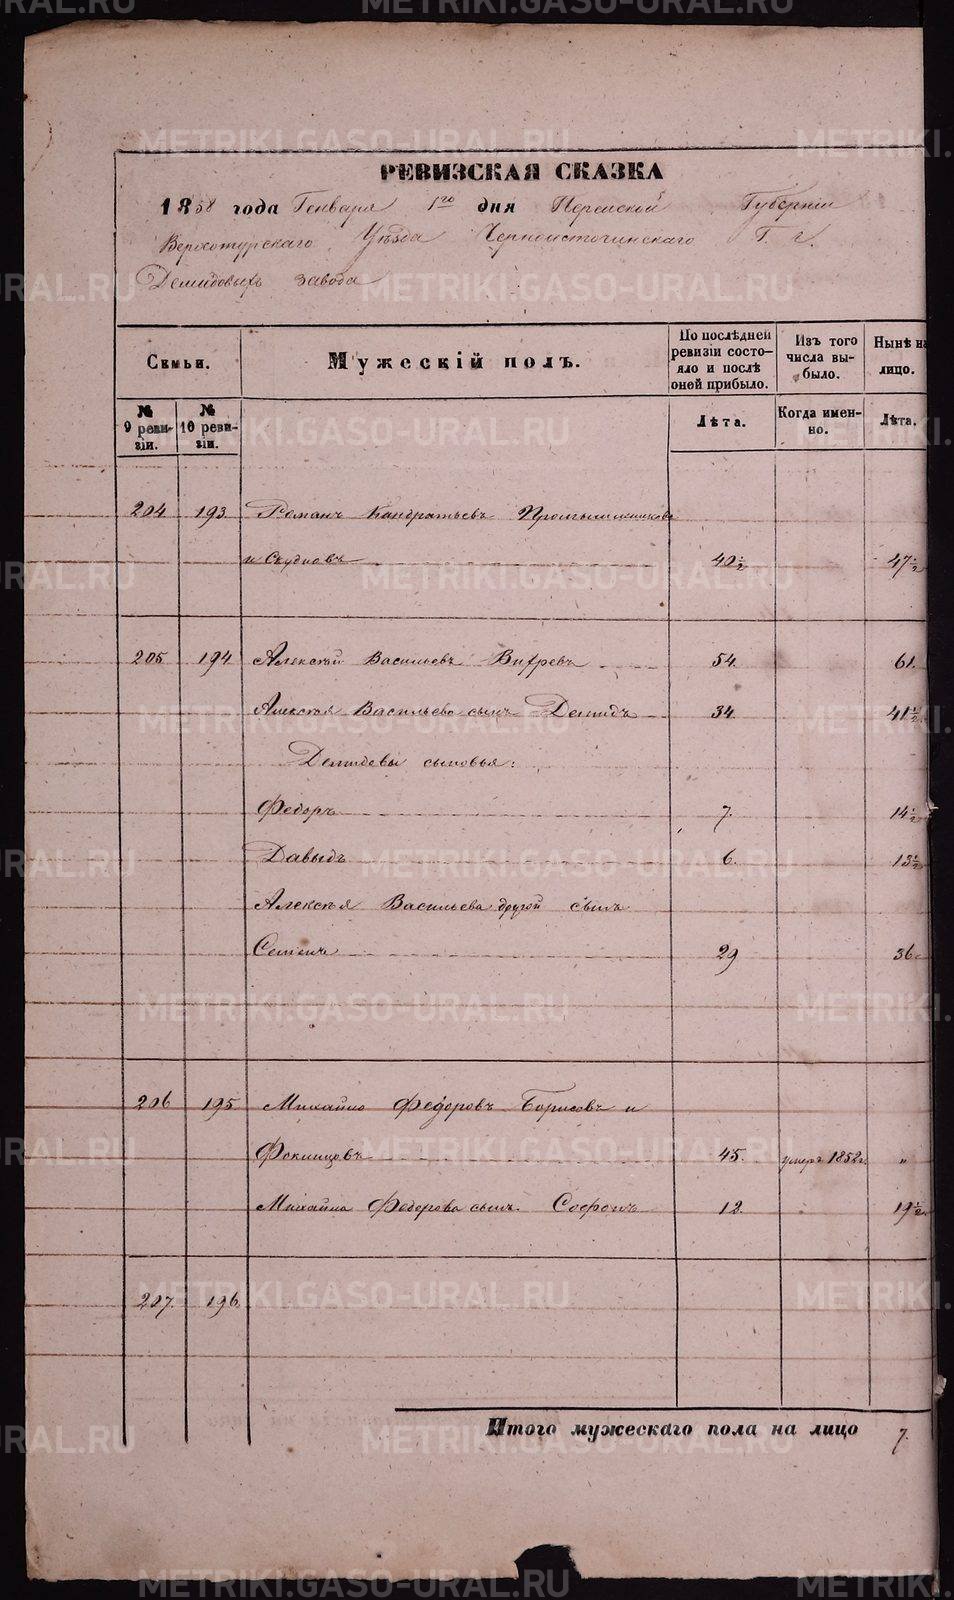 РЕВИЗСКАЯ СКАЗКА
1858 года Генваря 1го дня Пермской Губернiи
Верхотурскаго Уѣзда Черноисточинскаго Г. г.
Демидовыхъ завода
Семьи.
Мужескiй полъ.
По послѣдней ревизiи состо-
яло и послѣ оней прибыло.
Изъ того числа вы-
было.
Нынѣ на лицо.
№ 9 реви-
зiи.
№ 10 реви-
зiи.
Лѣта.
Когда имен-
но.
Лѣта.
204 193 Романъ Кандратьевъ
и Скудновъ 40½ 47½
205 194 Алексѣй Васильевъ 54. 61.
Алексѣя Васильева сынъ Демидъ 34. 41½
Демидовы сыновья:
Федоръ 7. 14½
Давыдъ 6. 13½
Алексѣя Васильева другой сынъ
Семенъ 29 36
206 195 Михайло Федоровъ Борисовъ и
45. умеръ 1852г. "
Михайла Федорова сынъ Софонъ 12. 19½
207. 196.
Итого мужескаго пола на лицо 7.
METRIKI.GASO-URAL.RU